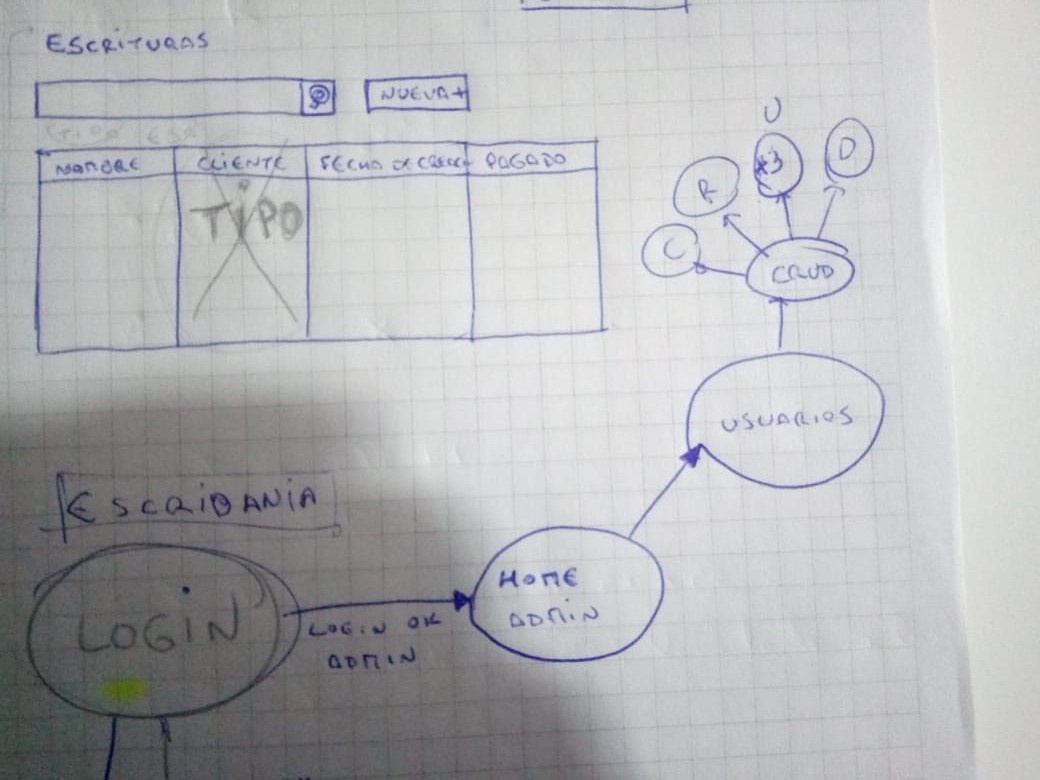 ESCRITURAS
NUEVA+
NOMBRE CLIENTE FECHA DE PAGADO
TIPO
U
D
R
C
CRUD
USUARIOS
ESCRIBANIA
LOGIN
LOGIN OK
ADMIN
HOME
ADMIN